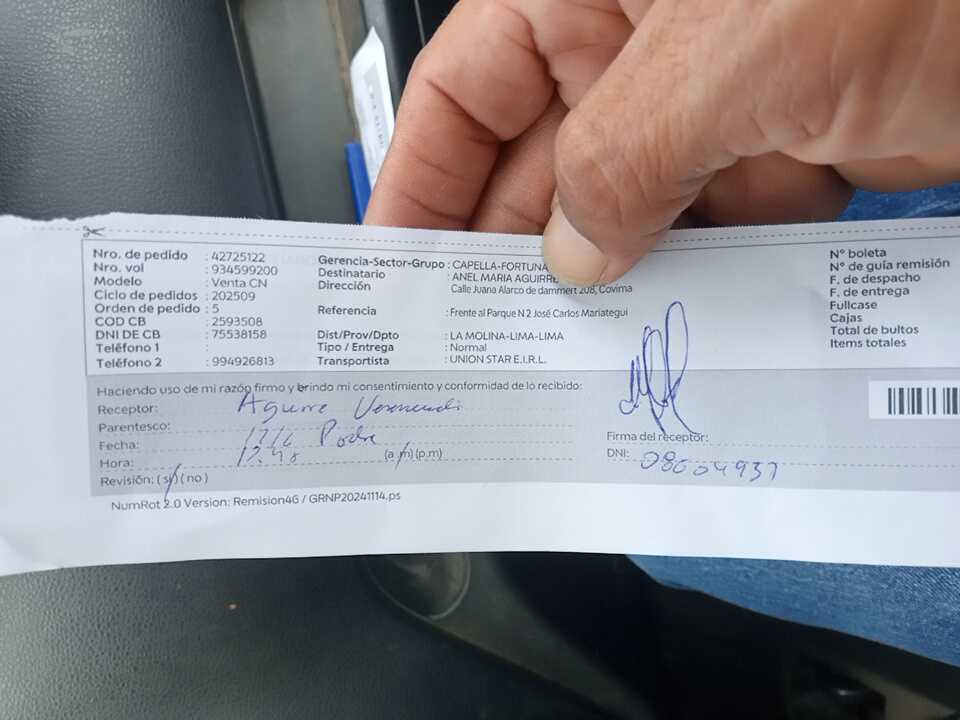 Nro. de pedido : 42725122
Nro. vol : 934599200
Modelo : Venta CN
Ciclo de pedidos : 202509
Orden de pedido : 5
COD CB : 2593508
DNI DE CB : 75538158
Teléfono 1 :
Teléfono 2 : 994926813
Gerencia-Sector-Grupo : CAPELLA-FORTUNA
Destinatario : ANEL MARIA
Dirección Calle Juana Alarco de dammert 208, Covima
Referencia : Frente al Parque N 2 José Carlos Mariategui
Dist/Prov/Dpto : LA MOLINA-LIMA-LIMA
Tipo / Entrega : Normal
Transportista : UNION STAR E.I.R.L.
N° boleta
N° de guía remisión
F. de despacho
F. de entrega
Fullcase
Cajas
Total de bultos
Items totales
Haciendo uso de mi razón firmo y brindo mi consentimiento y conformidad de lo recibido:
Receptor: Aguirre
Parentesco:
Fecha:
Hora: (a.m) (p.m)
Revisión: (si) (no)
Firma del receptor:
DNI: 08004937
NumRot 2.0 Version: Remision46 / GRNP20241114.ps